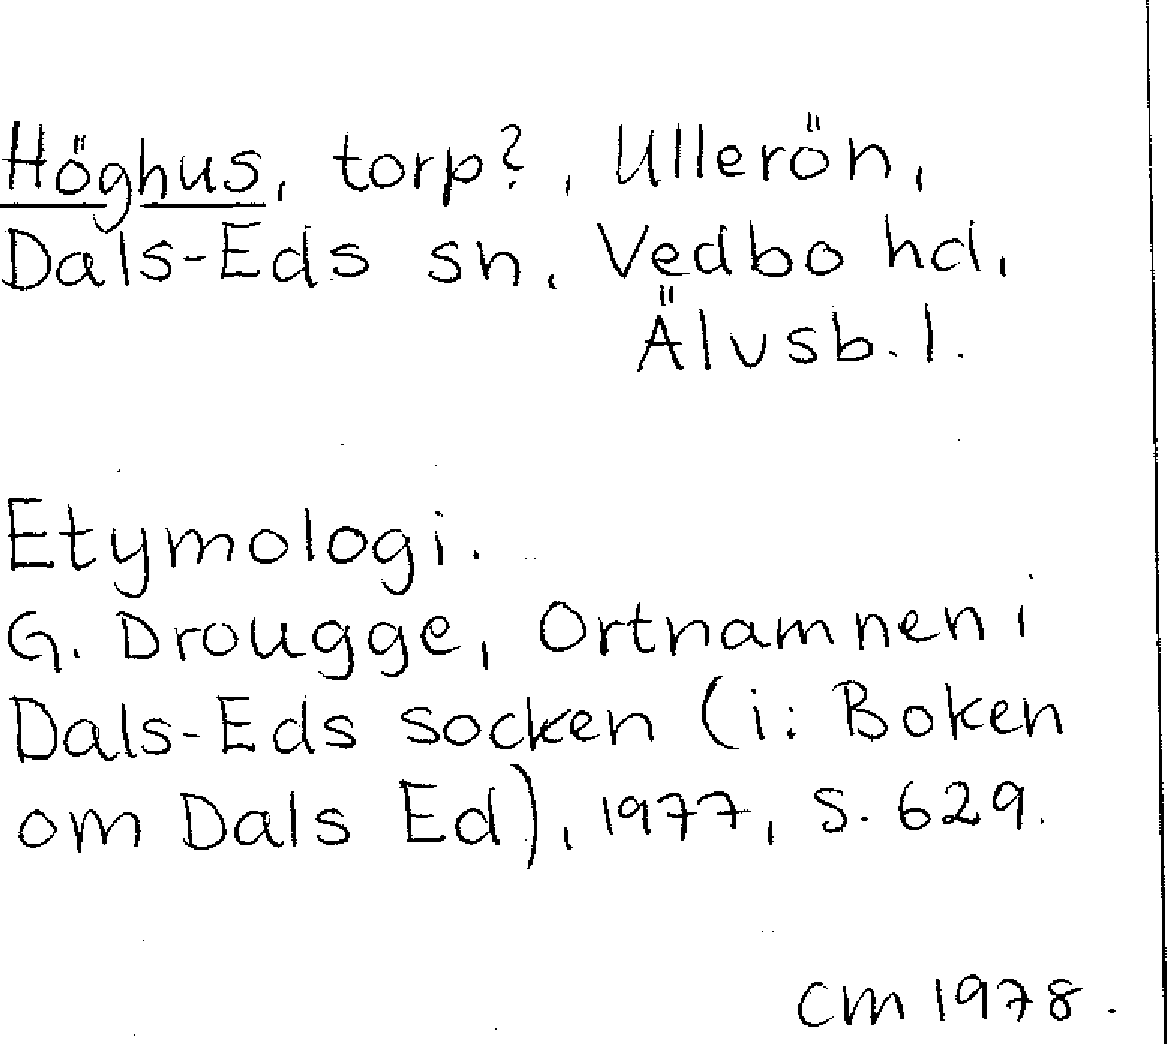 Höghus, torp?, Ullerön,
Dals-Eds sn, Vedbo hd,
Älvsb. l.
Etymologi.
G. Drougge, Ortnamnen i
Dals-Eds socken (i: Boken
om Dals Ed), 1977, s. 629.
CM 1978.